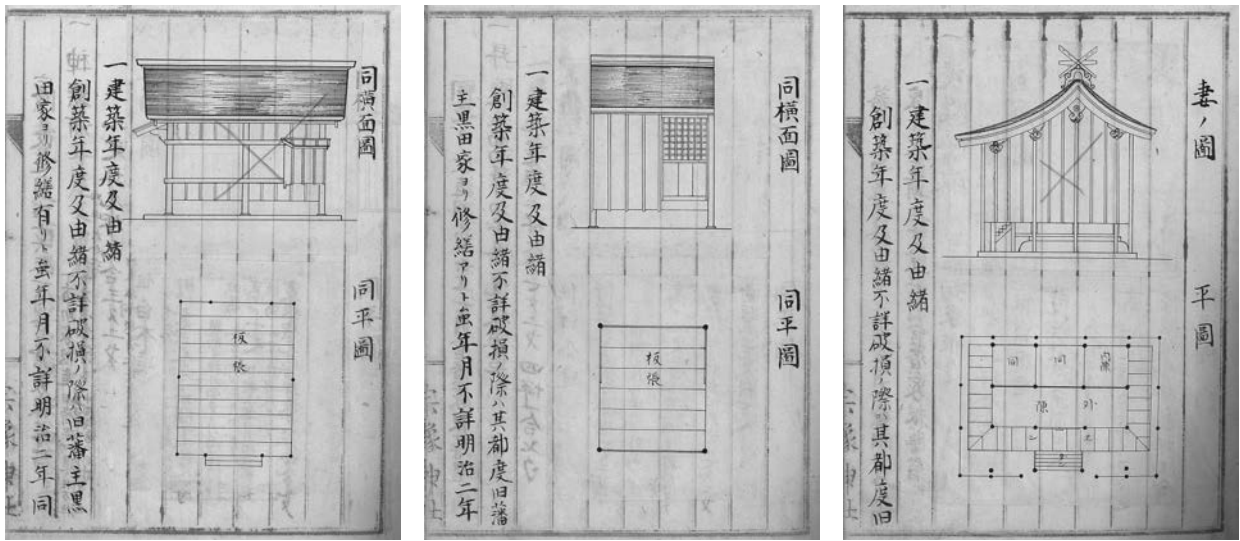 同橫面圖
同平圖
板
張
一建築年度及由緒
創築年度及由緒不詳破損ノ際ハ旧藩主黒
田家ヨリ修繕有リト虽年月不詳明治二年同
同橫面圖
同平圖
板
張
一建築年度及由緒
創築年度及由緒不詳破損ノ際ハ其都度旧藩
主黒田家ヨリ修繕アリト虽年月不詳明治二年
妻ノ圖
平圖
内陣
同
同
外
陳
一建築年度及由緒
創築年度及由緒不詳破損ノ際ハ其都度旧